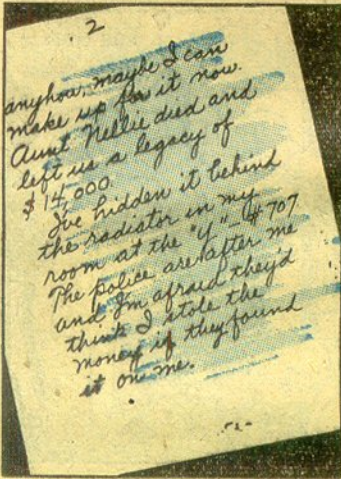 2
anyhow, maybe I can
make up for it now.
Aunt Nellie died and
left us a legacy of
$14,000.
I've hidden it behind
the radiator in my
room at the "Y" - #707
The police are after me
and I'm afraid they'd
think I stole the
money if they found
it on me.
-2-